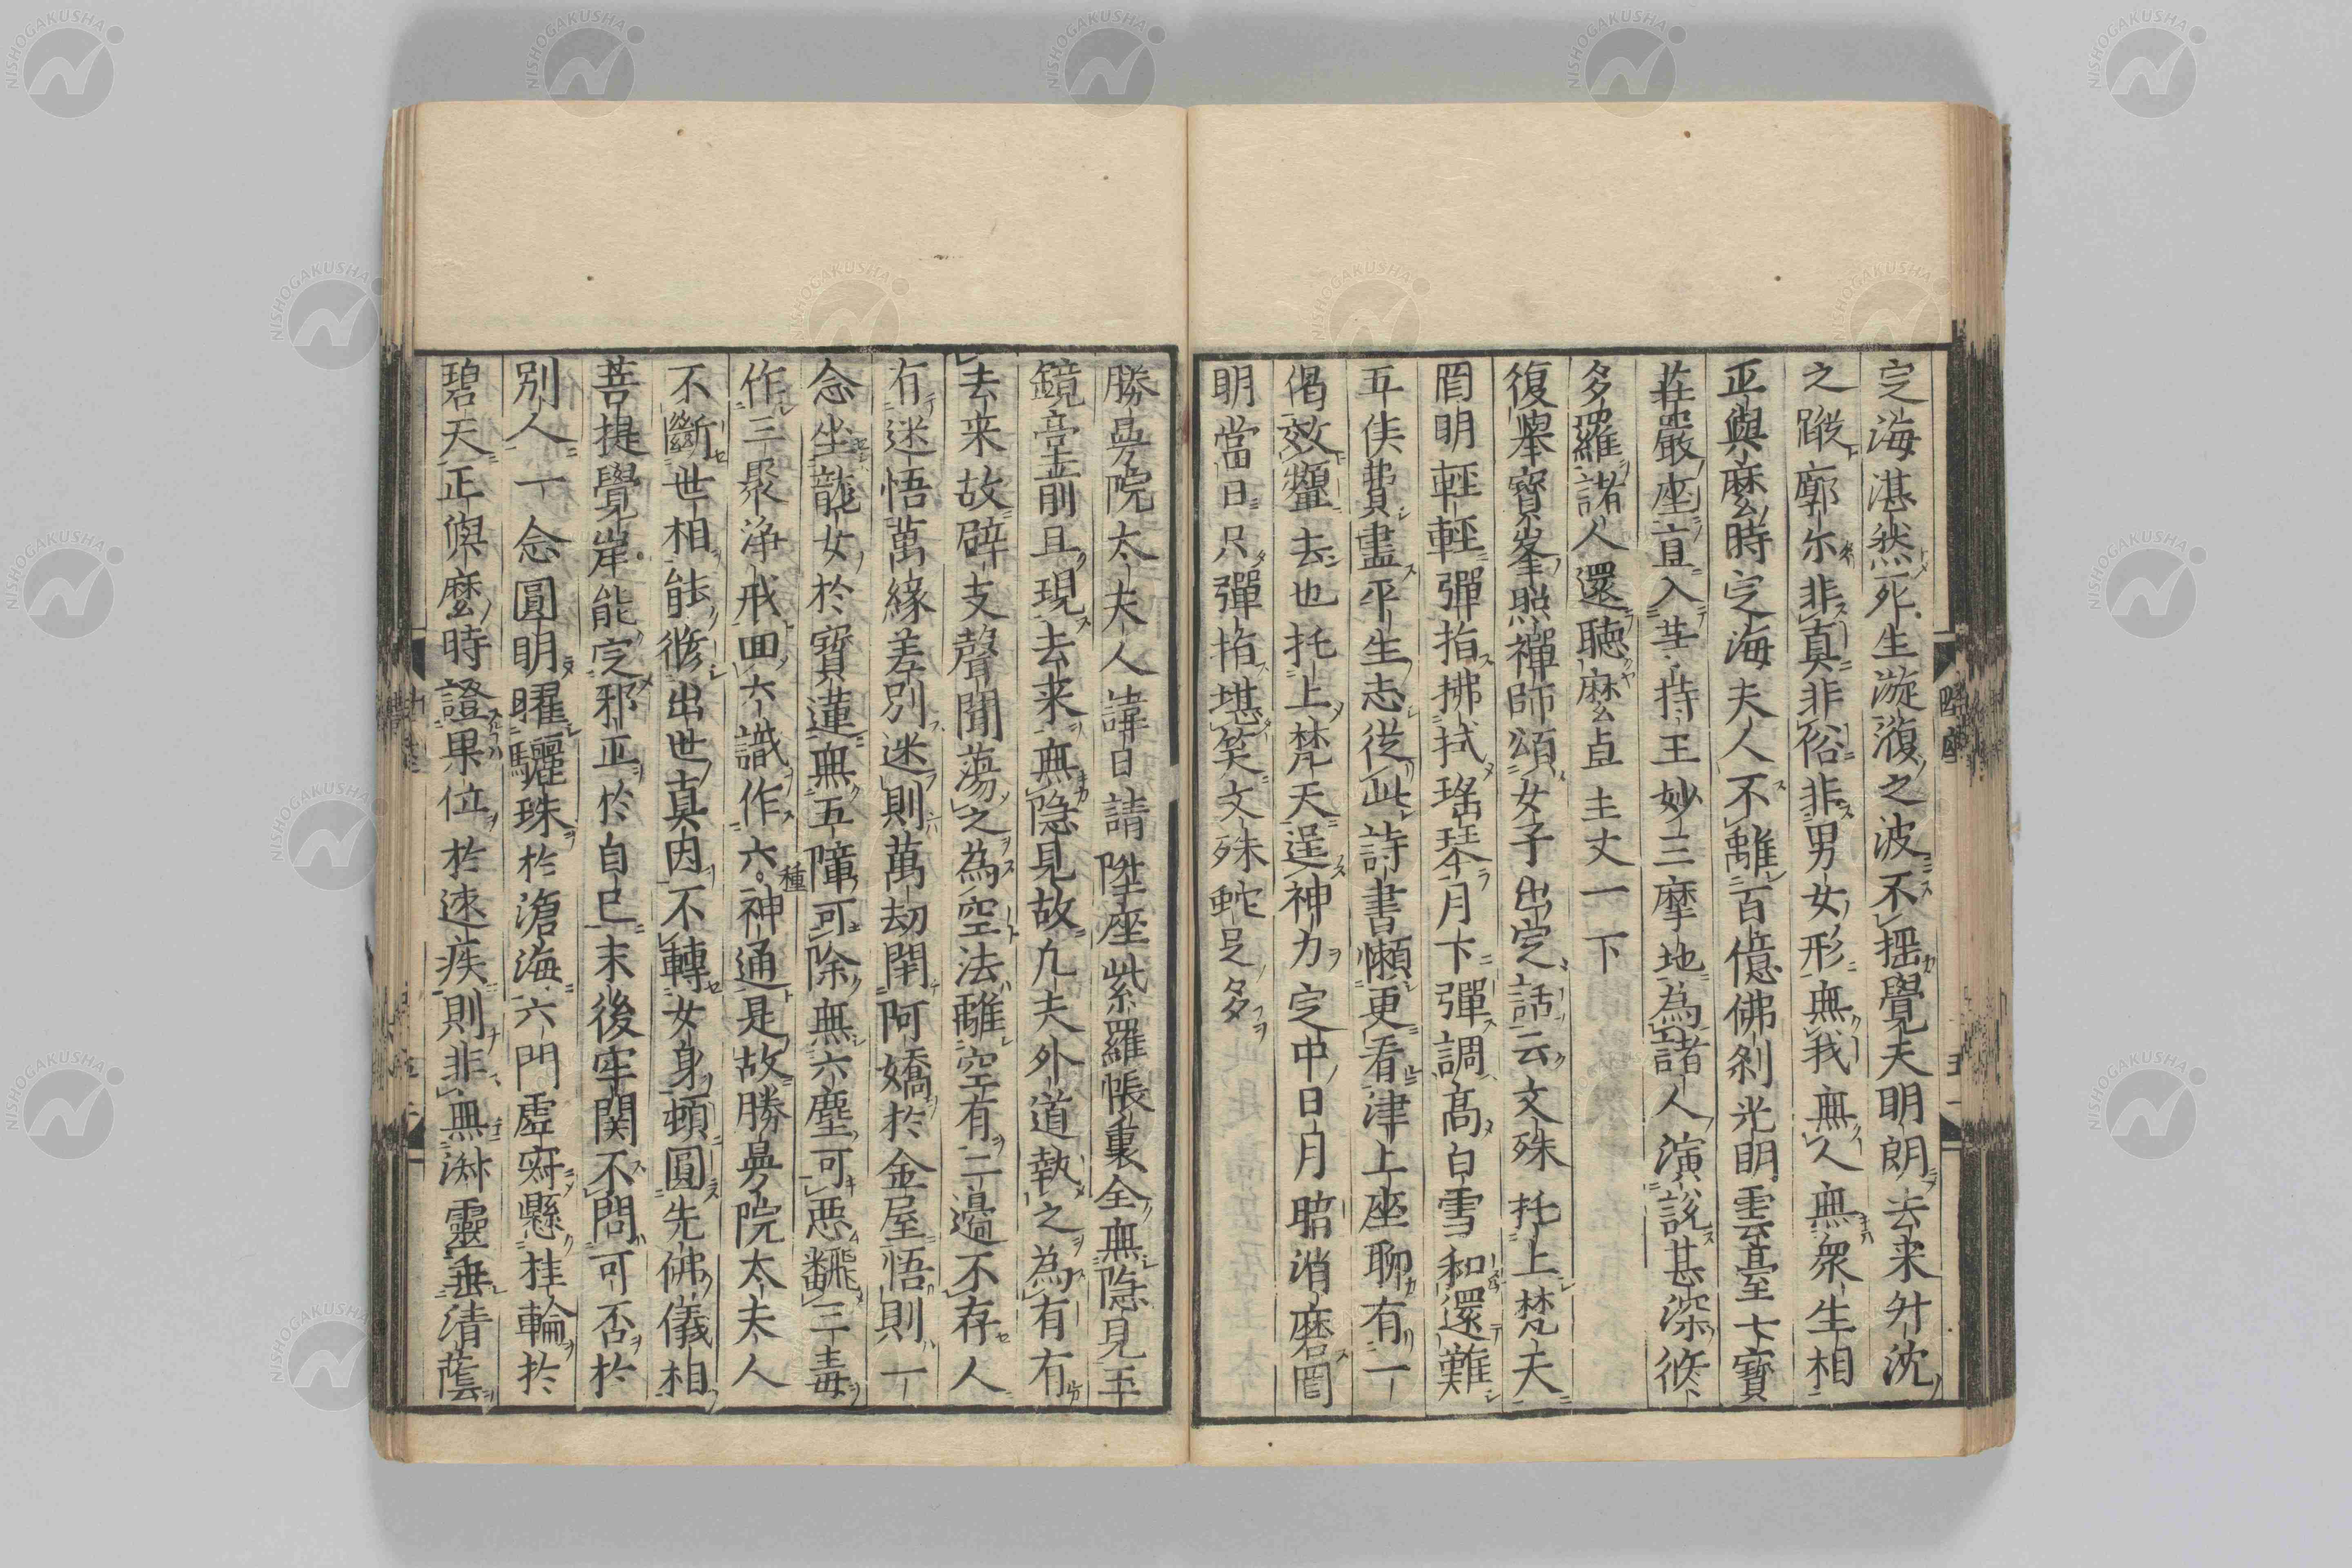 定海湛然死生漩澓之波不揺覺夫明朗去来升沈
之蹤廓尓非真非俗非男女形無我無人無衆生相
正與麼時定海夫人不離百億佛刹光明雲臺七寶
莊嚴座直入昔持王妙三摩地為諸人演說甚深修
多羅諸人還聽麼卓主丈一下
復擧寶峯照禪師頌女子出定話云文殊托上梵天
罔明輕輕彈指拂拭瑤琴月下彈調高白雪和還難
五侯費盡平生志從此詩書懶更看津上座聊有一
偈效顰去也托上梵天逞神力定中日月暗消磨罔
明當日只彈指堪笑文殊蛇足多
勝鬘院太夫人諱日請陞座紫羅帳裏全無隱見玉
鏡臺前且現去来無隱見故凡夫外道執之為有有
去来故辟支聲聞蕩之為空法離空有二邊不存人
有迷悟萬緣差別迷則萬劫閉阿嬌於金屋悟則一
念坐龍女於寶蓮無五障可除無六塵可惡翻三毒
作三聚淨戒回六識作六種神通是故勝鬘院太夫人
不斷世相能修出世真因不轉女身頓圓先佛儀相
菩提覺岸能定邪正於自己末後牢関不問可否於
別人一念圓明曜驪珠於滄海六門虛寂懸桂輪於
碧天正與麼時證果位於速疾則非無淋靈垂清蔭